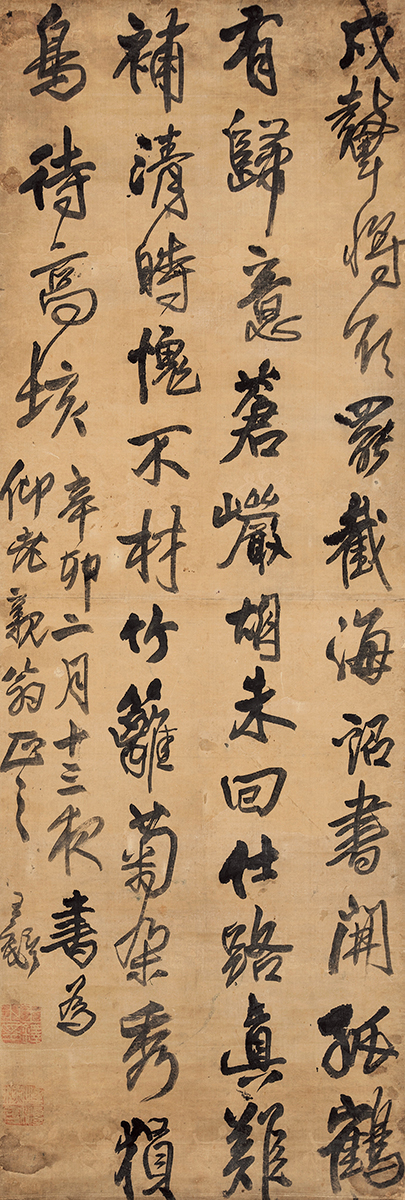 戍鼙將欲罷截海詔書開孤鶴
有歸意蒼巖胡未回仕路真難
補清時愧不材竹籬菊架秀
鳥待高垓
辛卯二月十三夜書為
仰老親翁正之 王鐸